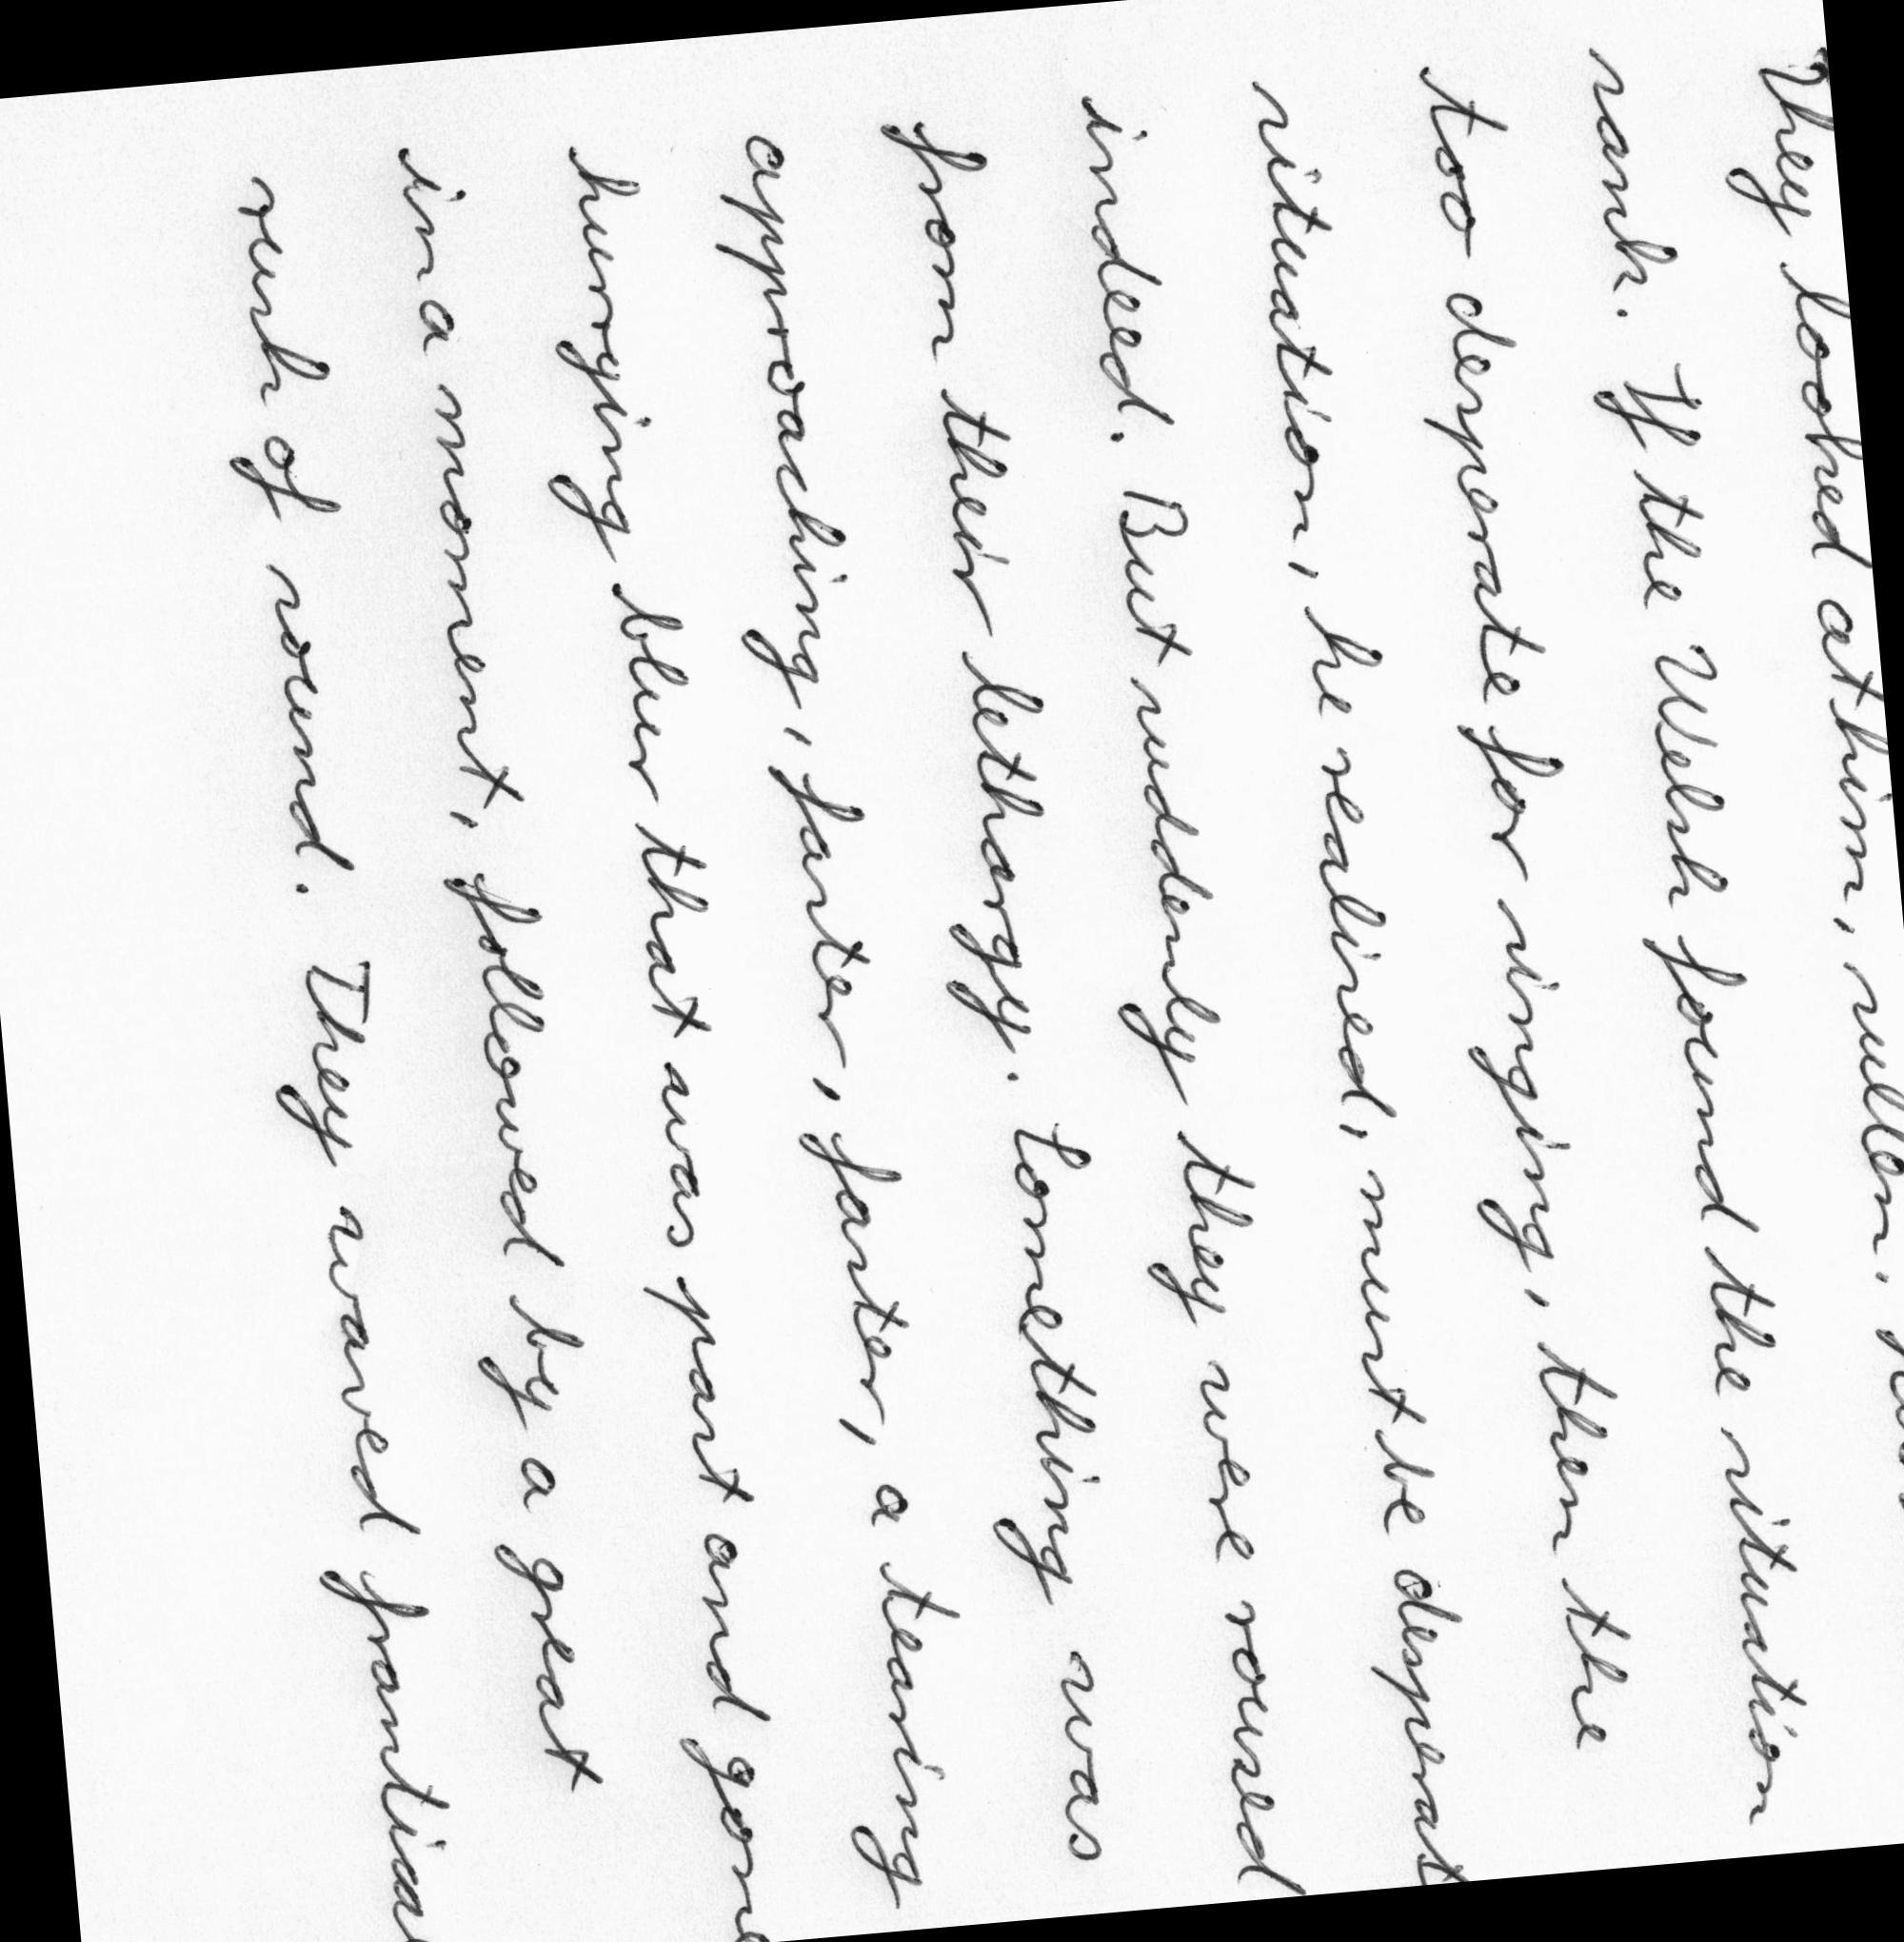 They looked at him, sullen.
sank. If the Welsh found the situation
too desperate for singing, then the
situation, he realised, must be desperat
indeed. But suddenly they were roused
from their lethargy. Something was
approaching, faster, faster, a tearing
hurrying blur that was past and gone
in a moment, followed by a great
rush of sound. They waved frantical